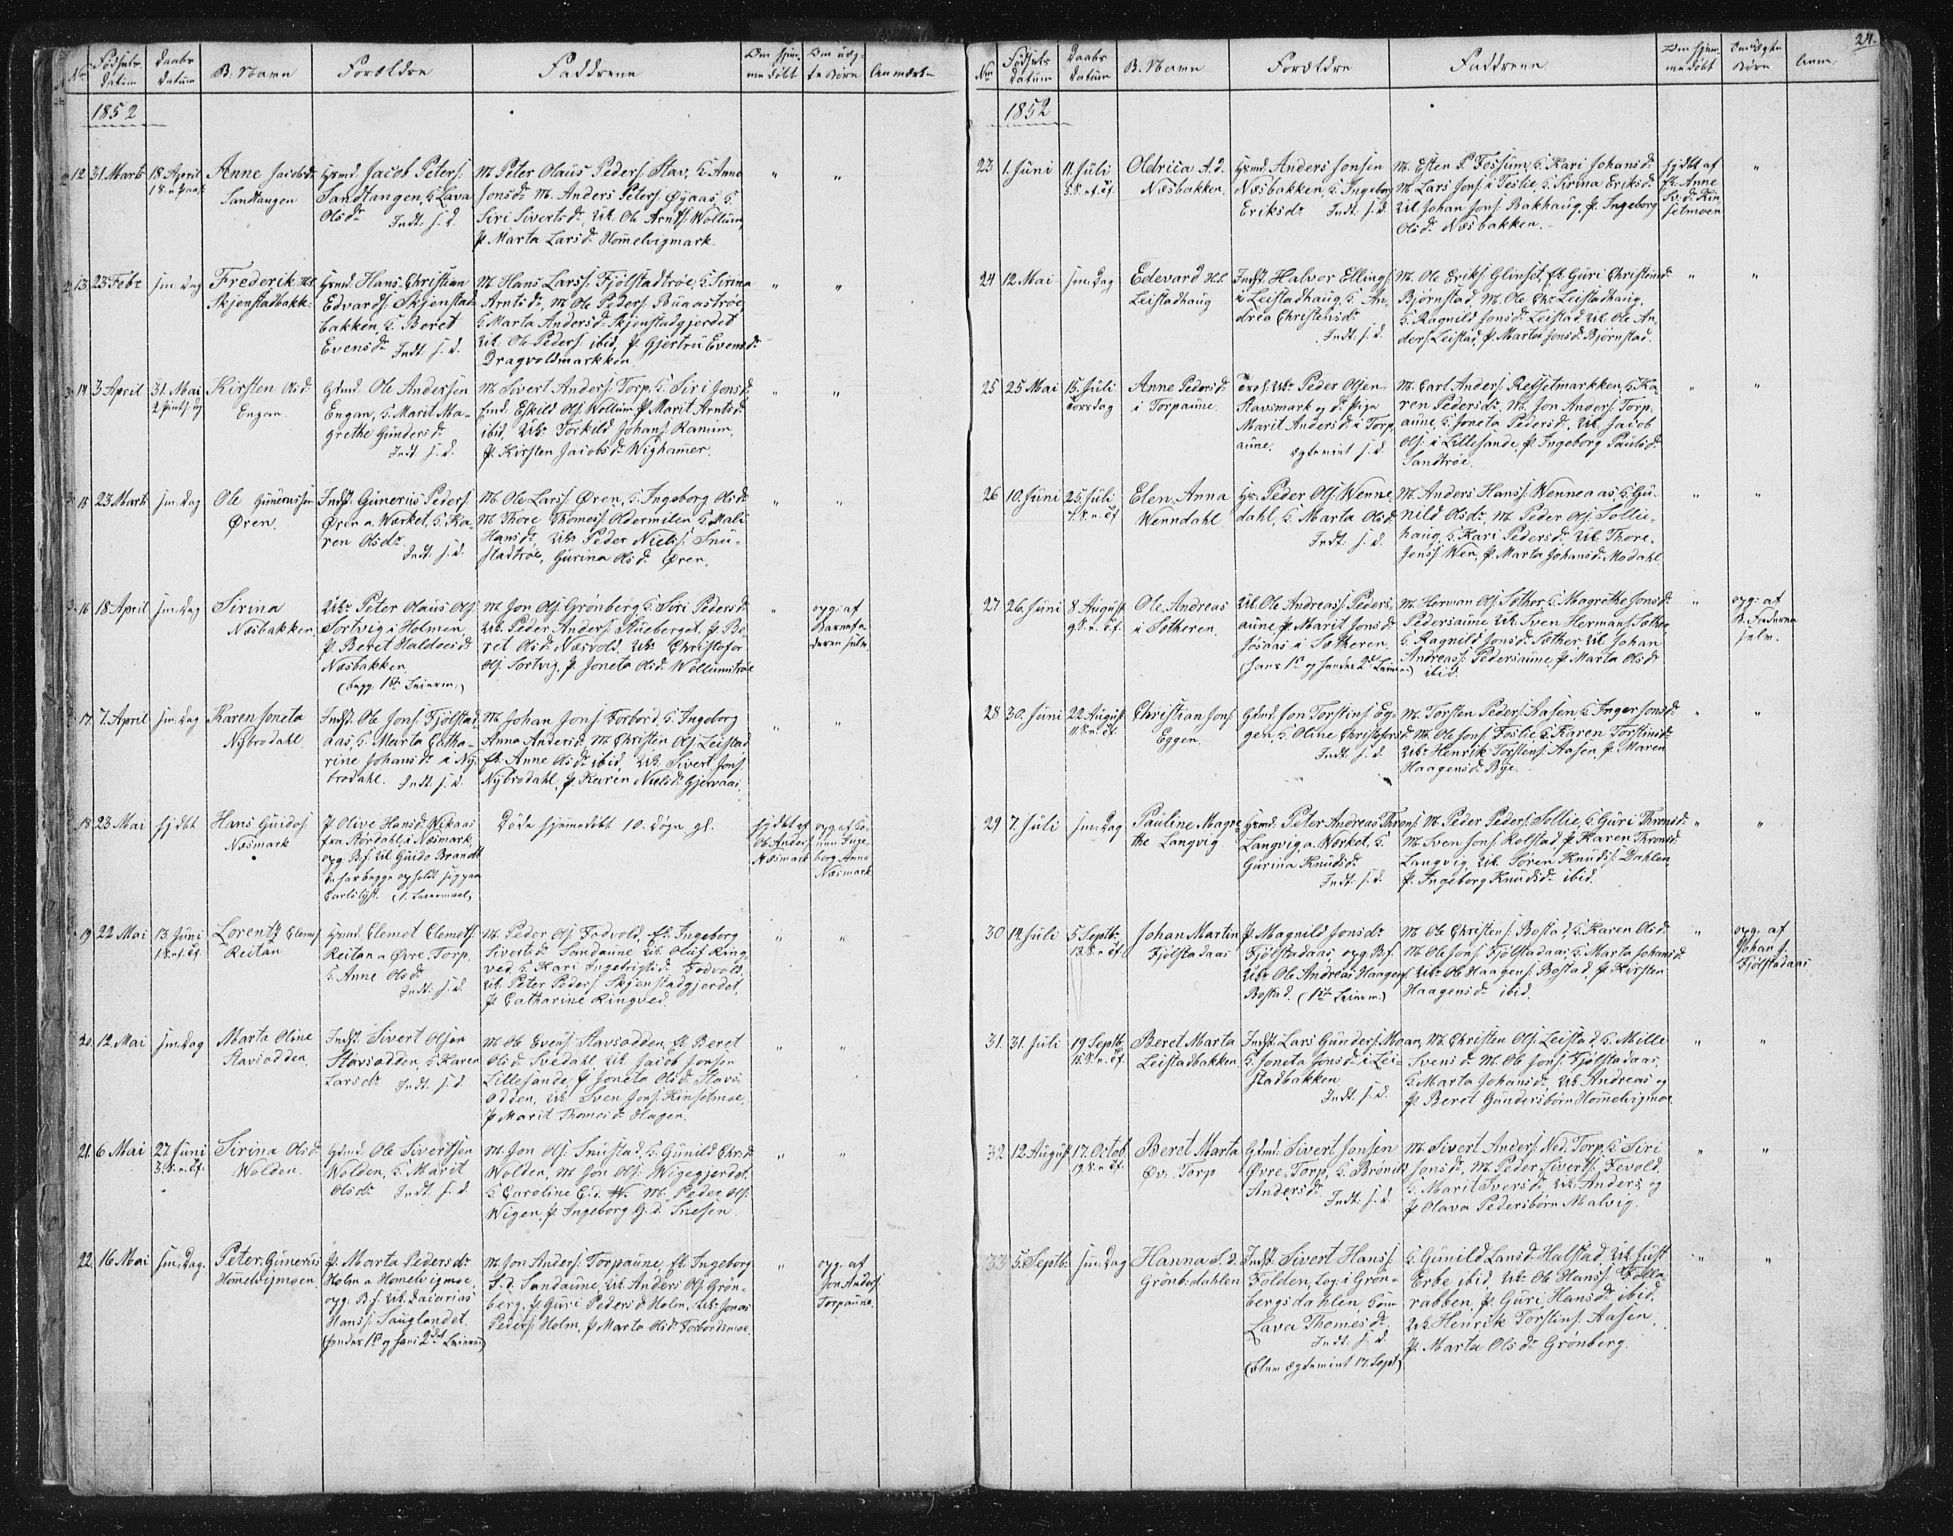 No
Fødsels
Datum
Daabs
Datum
B. Navn
Forældre
Faddrene
Om hjem-
me døbt
Om uæg-
te Børn
Anmærk.
1852
12
31 Marts
18 April
Anne Jacobsd.
Sandtangen
Hmd. Jacob Peters.
Sandtangen, K. Lava
Olsd.
Indt. s. d.
M. Peter Olaus Peders. Stav, K. Anne
Jonsd. M. Anders Peters. Øyaas, K.
Siri Sivertsd. Uk. Ole Arnts. Wollum,
P. Marta Larsd. Hommelvigmark.
13
23 Febr
sm. Dag
Frederik
Skjenstadbakk.
Hmd. Hans Christian
Edvards. Skjenstad-
bakken, K. Beret
Evensd. Indt. s. d.
M. Hans Larss. Fjölstadtrøe, K. Sirina
Arntsd., M. Ole Peders. Buaastrøe,
K. Marta Andersd. Skjenstadgjerdet
Uk. Ole Peders. ibid, P. Gjertru Evensd.
Dragvoldmarkken.
14
3 April
31. Mai
Kirsten Olsd.
Engan.
Gmd. Ole Andersen
Engan, K. Marit Ma-
grethe Gundersd.
Indt. s. d.
M. Sivert Anders. Torp, K. Siri Jonsd.
Eskild Ols. Wollum P. Marit Arntsd.
ibid, Uk. Torkild Johans. Ranum,
P. Kirsten Jacobsd. Wighamer.
15
23 Marts
sm. Dag
Ole Gunerussen
Øren.
Indst. Gunerus Peders.
Øren v. Værket, K. Ka-
ren Olsd.
Indt. s. d.
M. Ole Larss. Øren, K. Ingeborg Olsd.
M. Thore Thomess. Oldermelen K. Mali
Hansd. Uk. Peder Niels. Snu-
stadtrøe, Gurina Olsd. Øren.
16
18 April
sm. Dag
Sirina
Næsbakken
Uk. Peter Olaus Ols.
Sortvig i Holmen
P. Beret Haldosd.
Næsbakken
(begg. 1ste Leierm.)
M. Jon Ols. Grønberg, K. Siri Pedersd.
Uk. Peder Anders. Stueberget, P. Be-
ret Olsd. Næsvold, Uk. Christofer
Ols. Sortvig, P. Joneta Olsd. Wollumstrøe
opg. af
Barnefa-
deren selv
17
7. April
sm. Dag
Karen Joneta
Nybrodahl.
Indst. Ole Jons. Fjölstad-
aas, K. Marta Catha-
rine Johansd. i Ny-
brodahl. Indt. s. d.
M. Johan Jons. Forbord, K. Ingeborg
Anna Andersd. M. Christen Ols. Leistad
Anne Olsd. ibid, Uk. Sivert Jons.
Nybrodahl, P. Karen Nielsd. Gjervaas.
18
23 Mai
hj. døbt
Hans Guidos.
Næsmark
P. Olive Hansd. Wikaas
fra Stördahl i Næsmark,
opg. Bf. Uk. Guido Brandt
de har begge opholdt sig paa
Carlslyst. (1. Leiermaal)
Døde hjemmedøbt 10. Dage gl.
hj. døbt af
Ole Anders.
Næsmark
opg. af Ko-
nen Inge-
borg Anne
Næsmark
19
22 Mai
13. Juni
Lorentz Elemets.
Reitan
Hmd. Elemet Elemets.
Reitan v. Øvre Torp,
K. Anne Olsd.
Indt. s. d.
M. Peder Ols. Fodvold, Ingeborg
Sivertsd. Sandaune Uk. Oluf Ring-
ved, K. Kari Ingebrigtsd. Fodvold,
Uk. Peter Peders. Skjenstadgjerdet,
P. Catharine Ringved.
20.
12. Mai
sm. Dag
Marta Oline
Stavsodden.
Indst. Sivert Olsen
Stavsodden, K. Karen
Larsd. Indt. s. d.
M. Ole Evens. Stavsodden, Beret
Olsd. Svedahl, Uk. Jacob Jonsen
Lillesande, P. Joneta Olsd. Stavs-
odden, Uk. Sven Jons. Kinsetmoe,
P. Marit Thomesd. Hagen.
21.
6 Mai
27 Juni
Sirina Olsd.
Wolden.
Gmd. Ole Sivertsen
Wolden, K. Marit
Olsd. Indt. s. d.
M. Jon Ols. Snustad, K. Gunild
Wolden, M. Jon Ols. Wigegjerdet,
K. Caroline E. d. M. Peder Ols.
Wigen, P. Ingeborg G. d. Snesen.
22.
16 Mai
sm. Dag.
Peter Gunerius
Homelvigmoen
P. Marta Pedersd.
Holm v. Homelvigmoe,
opg. Bf. Uk. Zacarias
Hanss. Sauglandet.
(hendes 1ste og hans 2det Leierm.)
M. Jon Anders. Torpaune, Ingeborg
S. d. Sandaune, Uk. Anders Ols. Grön-
berg, P. Guri Pedersd. Holm, Uk. Jonas
Peders. Holm, P. Marta Olsd. Forbordsmoe.
opg. af
Jon Anders.
Torpaune.
24.
No
Fødsels
Datum
Daabs
Datum
B. Navn
Forældre
Faddrene
Om hjem-
me døbt
Om uægte
Børn
Anm.
1852
23
1. Juni
11. Juli
Oldrica A. d.
Næsbakken.
Hmd. Anders Jonsen
Næsbakken, K. Ingeborg
Eriksd. Indt. s. d.
M. Esten P. Fossum, K. Kari Johansd.
M. Lars Jons. i Teslie, K. Sirina Eriksd.
Uk. Johan Jons. Bakhaug, P. Ingeborg
Olsd. Næsbakken.
hj. døbt af
Anne
Kin-
setmoen
24
12. Mai
sm. Dag
Edevard H. s.
Leistadhaug
Indst. Halvor Ellings.
i Leistadhaug, K. An-
drea Christensd.
Indt. s. d.
M. Ole Eriks. Glinset, Guri Christensd.
Bjørnstad, M. Ole Leistadhaug,
K. Ragnild Jonsd. Leistad, Uk. Ole An-
ders. Leistad, P. Marta Jonsd. Bjørnstad.
25
25 Mai
15. Juli
Torsdag
Anne Pedersd.
i Torpaune.
Uk. Peder Olsen
Stavsmark og Pige
Marit Andersd. i Torp-
aune. Egteviet s. d.
M. Carl Anders. Reitsetmarkken, K. Ka-
ren Pedersd. M. Jon Anders. Torp-
aune, K. Joneta Pedersd. Uk. Jacob
Ols. i Lillesande, P. Ingeborg Paulsd.
Sandtrøe.
26
10. Juni
25. Juli
Elen Anna
Wenndahl
Peder Ols. Wenne-
dahl, K. Marta Olsd.
Indt. s. d.
M. Anders Hanss. Wenneaas, K. Gu-
nild Olsd. M. Peder Ols. Sollie-
haug, K. Kari Pedersd. Uk. Thore
Jonss. Wen, P. Marta Johansd. Modahl
27
26. Juni
8 August
Ole Andreas
i Sotheren.
Uk. Ole Andreass. Peders-
aune, P. Marit Jonsd.
Josaas i Sotheren.
(hans 1ste og hendes 2det Leierm.)
M. Herman Ols. Sother, K. Magrethe Jonsd.
Pedersaune, Uk. Sven Hermans. Sother,
K. Ragnild Jonsd. Sother, Uk. Johan
Andreass. Pedersaune, P. Marta Olsd.
ibid.
opg. af
Faderen
selv.
28
30. Juni
22 August
Christian Jons.
Eggen.
Gmd. Jon Torstins. Eg-
gen, K. Oline Christofersd.
Indt. s. d.
M. Torsten Peders. Aasen, K. Inger Jonsd.
M. Ole Jons. Foslie, K. Karen Torstinsd.
Uk. Henrik Torstens. Aasen, P. Maren
Haagensd. Bye.
29
7. Juli
sm. Dag
Pauline Magre-
the Langvig
Hmd. Peter Andreas Throns.
Langvig v. Værket, K.
Gurina Knudsd.
Indt. s. d.
M. Peder Peders. Sollie, K. Guri Thronsd.
M. Sven Jons. Rolstad, P. Karen Thronsd.
Langvig, Uk. Sören Knuds. Dahlen
P. Ingeborg Knudsd. ibid.
30
14. Juli
5 Septb.
Johan Martin
Fjölstadaas
P. Magnild Jonsd.
Fjölstadaas, opg. Bf.
Uk. Ole Andreas Haagens.
Bostad. (1ste Leierm.)
M. Ole Christens. Bostad, K. Karen Olsd.
M. Ole Jons. Fjölstadaas, K. Marta Johansd.
Uk. Ole Haagens. Bostad, P. Kirsten
Haagensd. ibid.
opg. af
Johan J.
Fjölstadaas
31.
31. Juli
19 Septb.
Beret Marta
Leistadbakken
Indst. Lars Gunders. Moan,
K. Joneta Jonsd. i Lei-
stadbakken
Indt. s. d.
M. Christen Ols. Leistad, K. Mille
Svensd. M. Ole Jons. Fjölstadaas,
K. Marta Johansd., Uk. Andreas og
P. Beret Gundersbørn Hommelvigmoe.
32
12 August
17. Octob.
Beret Marta
Øv. Torp
Gmd. Sivert Jonsen
Øvre Torp, K. Brönild
Andersd.
Indt. s. d.
M. Sivert Anders. Ned. Torp, K. Siri
Jonsd., M. Peder Siverts. Fevold,
K. Marit Iversd. Uk. Anders og
P. Olava Pedersbørn Malvig.
33
5. Septb.
sm. Dag
Hanna S. d.
Grönb. dahlen
Indst. Sivert Hanss.
Folden, Log. i Grön-
bergsdahlen,
Lava Thomesd.
Indt. s. d.
(blev egteviet 17 Sept)
K. Gunild Larsd. Halstad, Uk. Just
Erbe ibid, Uk. Ole Hans. Folla-
rabben, P. Guri Hansd. ibid.
Uk. Henrik Torstins. Aasen,
P. Marta Olsd. Grönberg.